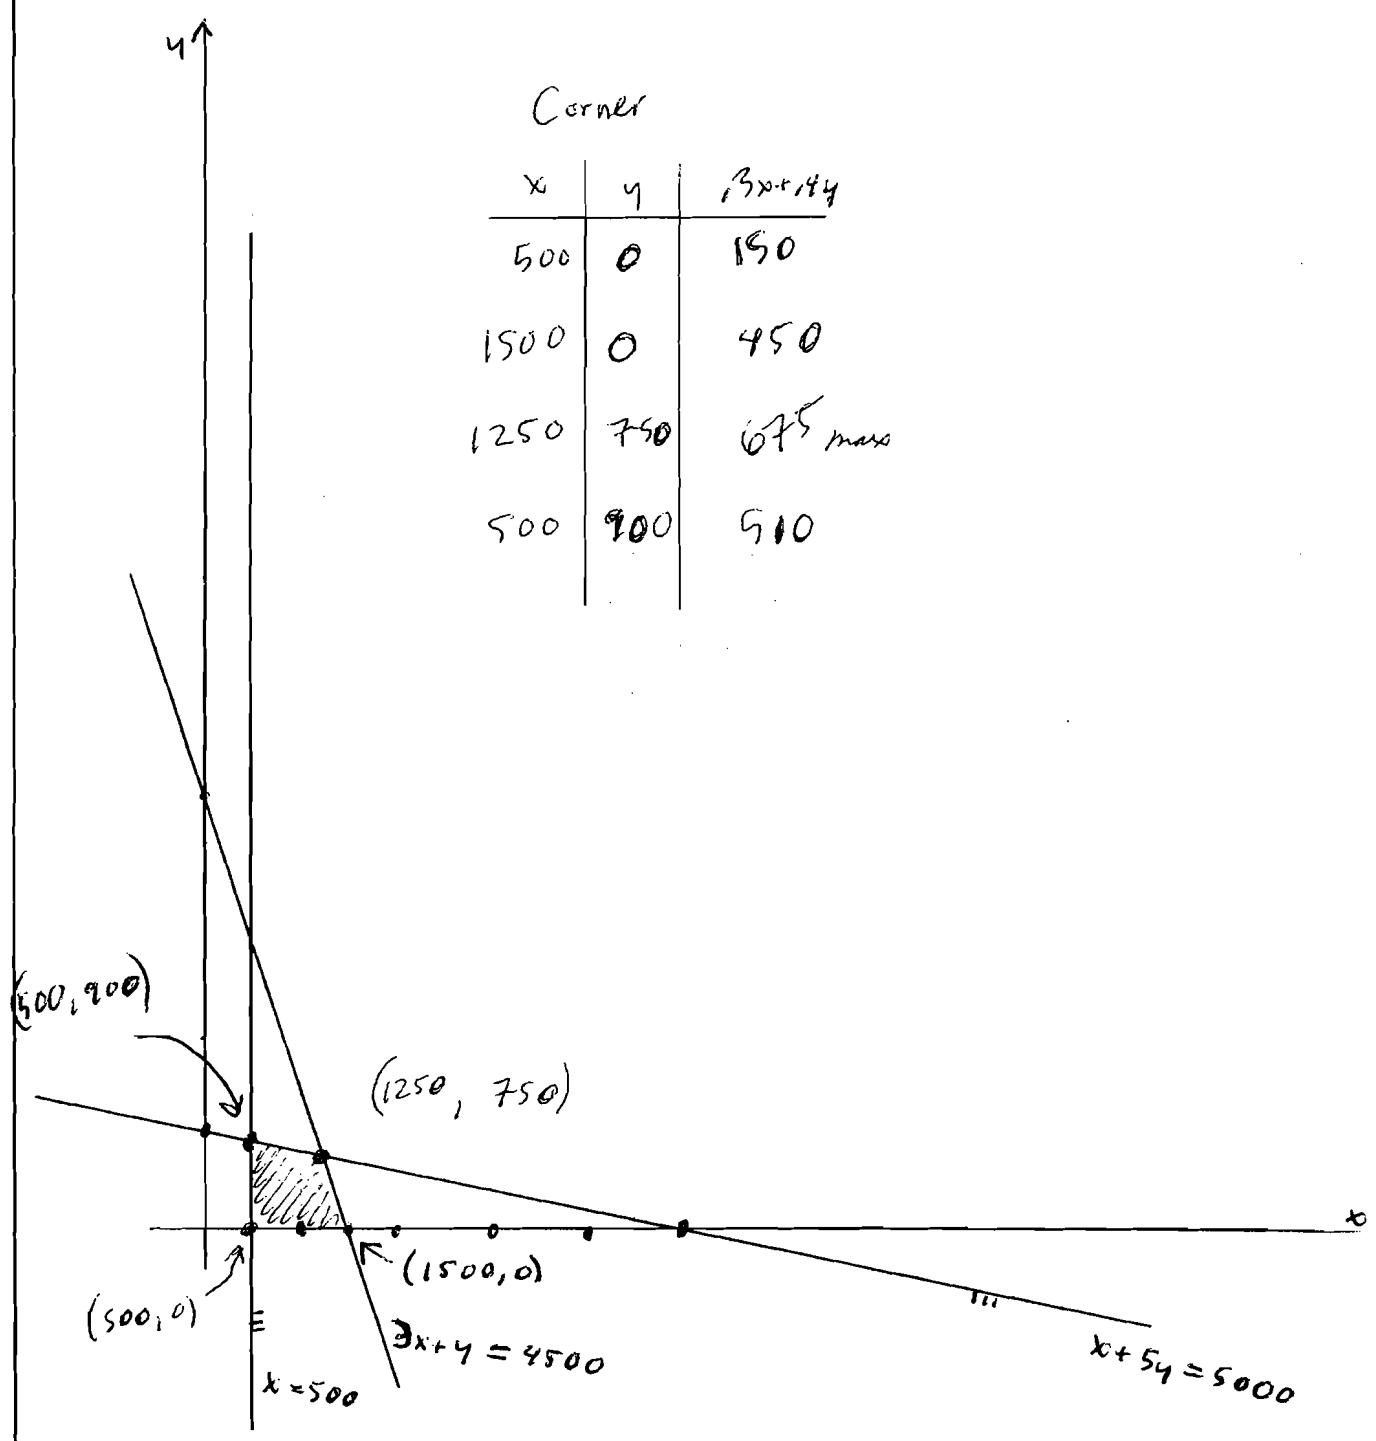 y
Corner
x y .3x+.4y
500 0 150
1500 0 450
1250 750 675 max
500 900 510
(500, 900)
(1250, 750)
x
(1500, 0)
(500, 0)
3x+y = 4500
x+5y = 5000
x = 500